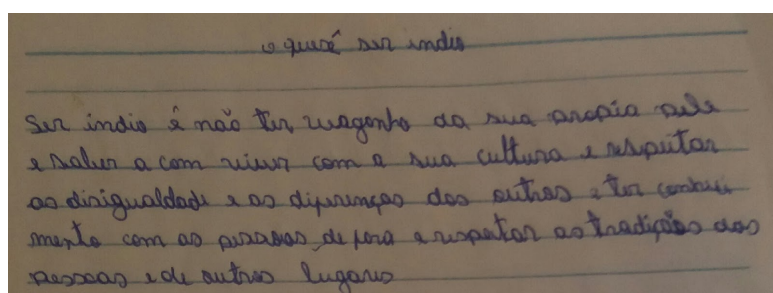 o quê é ser indio
ser indio é não ter vragonha da sua propia pele
e saber a com viver com a sua cultura e respeitar
as disigualdade e as diferenças dos outros e ter conheci
mento com as pessoas de fora e respeitar as tradições das
pessoas e de outros lugares